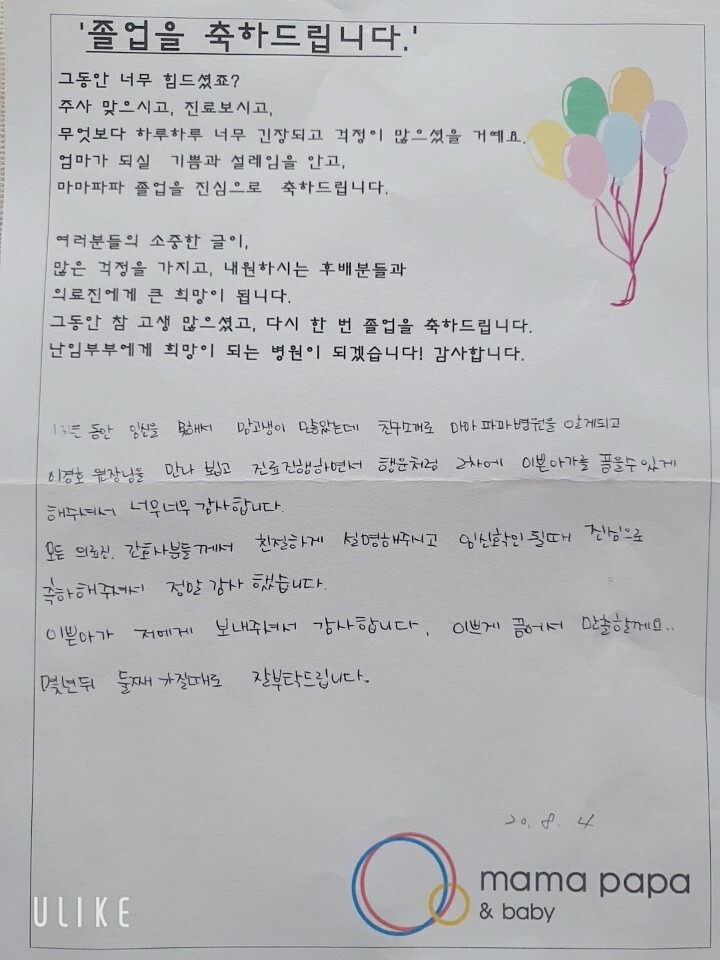 '졸업을 축하드립니다.'
그동안 너무 힘드셨죠?
주사 맞으시고, 진료보시고,
무엇보다 하루하루 너무 긴장되고 걱정이 많으셨을 거예요.
엄마가 되실 기쁨과 설레임을 안고,
마마파파 졸업을 진심으로 축하드립니다.
여러분들의 소중한 글이,
많은 걱정을 가지고, 내원하시는 후배분들과
의료진에게 큰 희망이 됩니다.
그동안 참 고생 많으셨고, 다시 한 번 졸업을 축하드립니다.
난임부부에게 희망이 되는 병원이 되겠습니다! 감사합니다.
동안 임신을 못해서 맘고생이 많았는데 친구소개로 마마파파병원을 알게되고
이경호 원장님을 만나 뵙고 진료진행하면서 행운처럼 2차에 이쁜아가를 품을수있게
해주셔서 너무너무 감사합니다.
모든 의료진. 간호사분들께서 친절하게 설명해주시고 임신확인 될때 진심으로
축하해주셔서 정말 감사 했습니다.
이쁜아가 저에게 보내주셔서 감사합니다. 이쁘게 품어서 만출할게요..
몇년뒤 둘째 가질때도 잘부탁드립니다.
20. 8. 4
mama papa
& baby
ULIKE